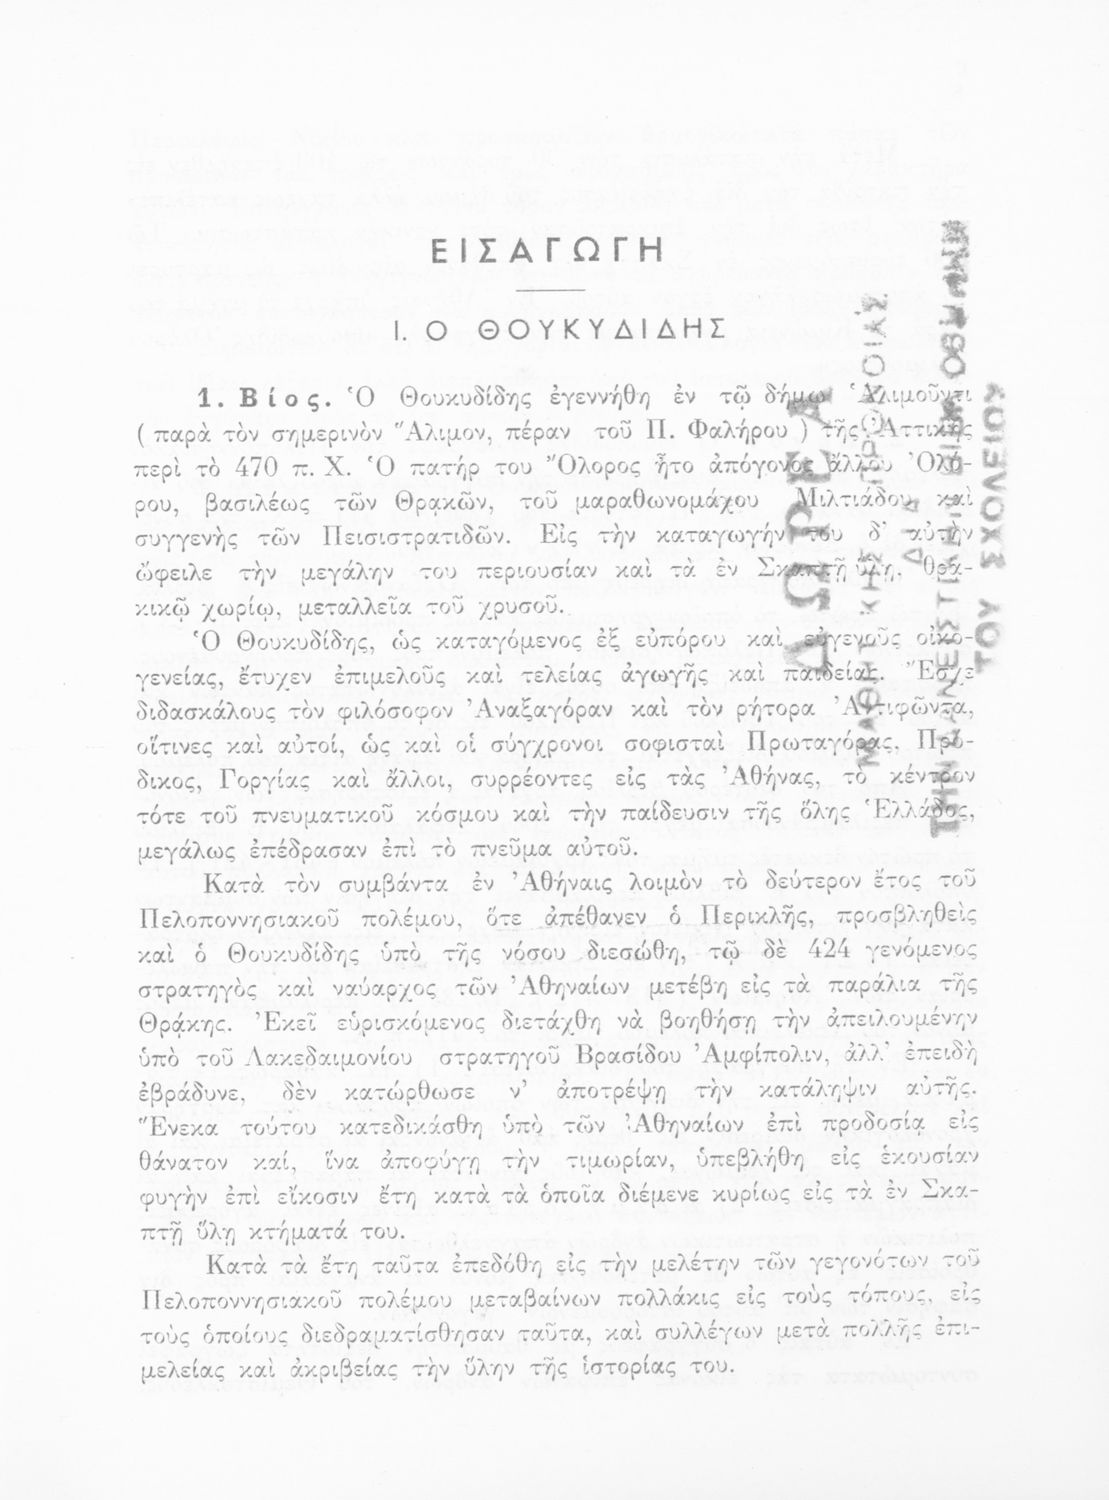 ΕΙΣΑΓΩΓΗ
Ι. Ο ΘΟΥΚΥΔΙΔΗΣ
1. Βίος. Ὁ Θουκυδίδης ἐγεννήθη ἐν τῷ δήμῳ Ἁλιμοῦντι
( παρὰ τὸν σημερινὸν Ἅλιμον, πέραν τοῦ Π. Φαλήρου ) τῆς Ἀττικῆς
περὶ τὸ 470 π. Χ. Ὁ πατήρ του Ὄλορος ἦτο ἀπόγονος ἄλλου Ὀλό-
ρου, βασιλέως τῶν Θρακῶν, τοῦ μαραθωνομάχου Μιλτιάδου καὶ
συγγενὴς τῶν Πεισιστρατιδῶν. Εἰς τὴν καταγωγήν του δ' αὐτὴν
ὤφειλε τὴν μεγάλην του περιουσίαν καὶ τὰ ἐν Σκαπτῇ ὕλῃ, θρα-
κικῷ χωρίῳ, μεταλλεῖα τοῦ χρυσοῦ.
Ὁ Θουκυδίδης, ὡς καταγόμενος ἐξ εὐπόρου καὶ εὐγενοῦς οἰκο-
γενείας, ἔτυχεν ἐπιμελοῦς καὶ τελείας ἀγωγῆς καὶ παιδείας. Ἔσχε
διδασκάλους τὸν φιλόσοφον Ἀναξαγόραν καὶ τὸν ρήτορα Ἀντιφῶντα,
οἵτινες καὶ αὐτοί, ὡς καὶ οἱ σύγχρονοι σοφισταὶ Πρωταγόρας, Πρό-
δικος, Γοργίας καὶ ἄλλοι, συρρέοντες εἰς τὰς Ἀθήνας, τὸ κέντρον
τότε τοῦ πνευματικοῦ κόσμου καὶ τὴν παίδευσιν τῆς ὅλης Ἑλλάδος,
μεγάλως ἐπέδρασαν ἐπὶ τὸ πνεῦμα αὐτοῦ.
Κατὰ τὸν συμβάντα ἐν Ἀθήναις λοιμὸν τὸ δεύτερον ἔτος τοῦ
Πελοποννησιακοῦ πολέμου, ὅτε ἀπέθανεν ὁ Περικλῆς, προσβληθεὶς
καὶ ὁ Θουκυδίδης ὑπὸ τῆς νόσου διεσώθη, τῷ δὲ 424 γενόμενος
στρατηγὸς καὶ ναύαρχος τῶν Ἀθηναίων μετέβη εἰς τὰ παράλια τῆς
Θράκης. Ἐκεῖ εὑρισκόμενος διετάχθη νὰ βοηθήσῃ τὴν ἀπειλουμένην
ὑπὸ τοῦ Λακεδαιμονίου στρατηγοῦ Βρασίδου Ἀμφίπολιν, ἀλλ' ἐπειδὴ
ἐβράδυνε, δὲν κατώρθωσε ν' ἀποτρέψῃ τὴν κατάληψιν αὐτῆς.
Ἕνεκα τούτου κατεδικάσθη ὑπὸ τῶν Ἀθηναίων ἐπὶ προδοσίᾳ εἰς
θάνατον καί, ἵνα ἀποφύγῃ τὴν τιμωρίαν, ὑπεβλήθη εἰς ἑκουσίαν
φυγὴν ἐπὶ εἴκοσιν ἔτη κατὰ τὰ ὁποῖα διέμενε κυρίως εἰς τὰ ἐν Σκα-
πτῇ ὕλῃ κτήματά του.
Κατὰ τὰ ἔτη ταῦτα ἐπεδόθη εἰς τὴν μελέτην τῶν γεγονότων τοῦ
Πελοποννησιακοῦ πολέμου μεταβαίνων πολλάκις εἰς τοὺς τόπους, εἰς
τοὺς ὁποίους διεδραματίσθησαν ταῦτα, καὶ συλλέγων μετὰ πολλῆς ἐπι-
μελείας καὶ ἀκριβείας τὴν ὕλην τῆς ἱστορίας του.
ΔΩΡΕΑ
ΤΟΥ ΣΧΟΛΕΙΟΥ